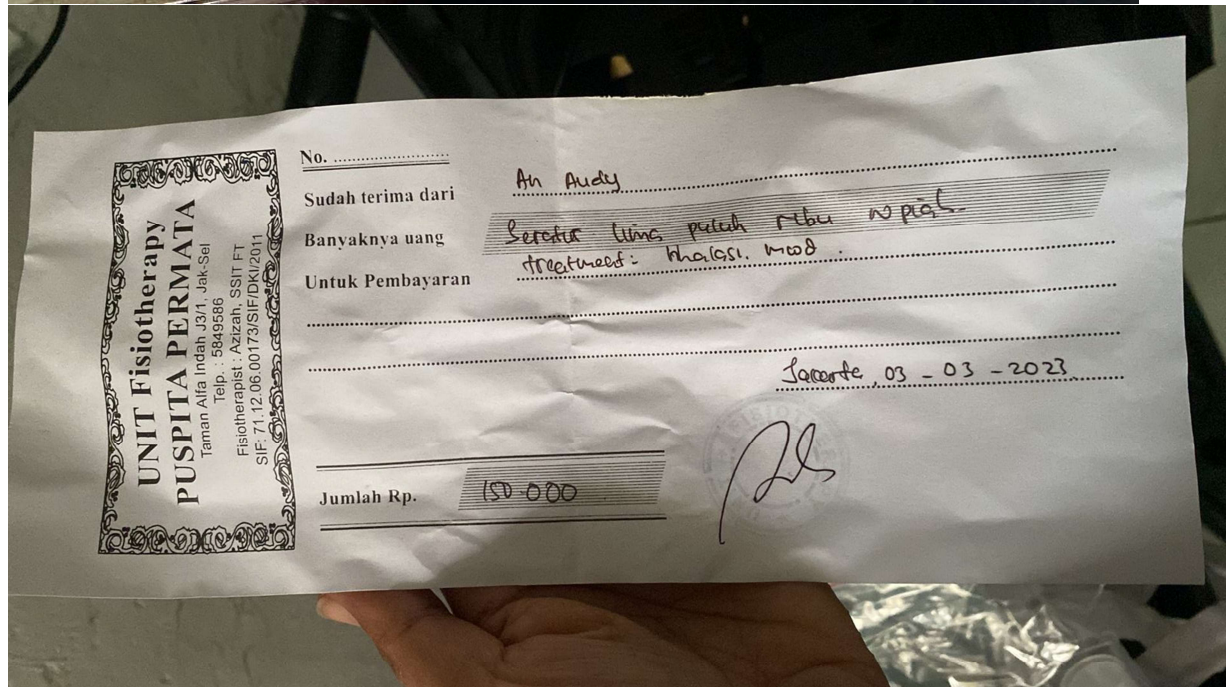 UNIT Fisiotherapy
PUSPITA PERMATA
Taman Alfa Indah J3/1, Jak-Sel
Telp. : 5849586
Fisiotherapist : Azizah, SSIT FT
SIF: 71.12.06.00173/SIF/DKI/2011
No. ............................
Sudah terima dari An Audy
Banyaknya uang Seratus lima puluh ribu rupiah.
Untuk Pembayaran treatment:
Jakarta, 03 - 03 - 2023
Jumlah Rp. 150.000